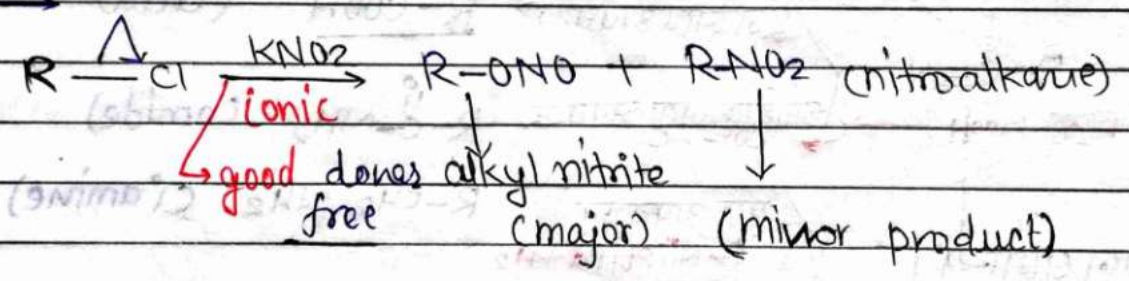 R—Cl KNO2 R-ONO + R-NO2 (nitroalkane)
ionic
good dones alkyl nitrite
free (major) (minor product)